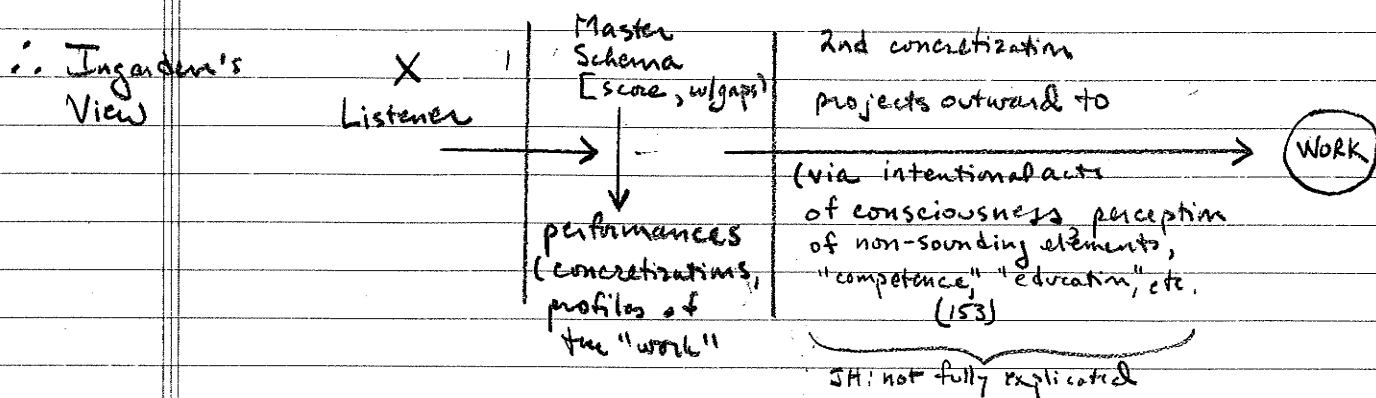 ∴ Ingarden's
View
X
Listener
Master
Schema
[score, w/gaps]
performances
(concretizations,
profiles of
the "work"
2nd concretization
projects outward to
(via intentional acts
of consciousness perception
of non-sounding elements,
"competence," "education," etc.
(153)
JH: not fully explicated
WORK